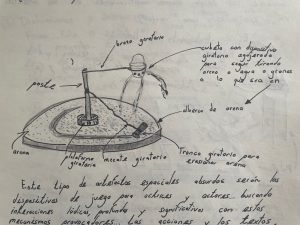 brazo giratorio
cubeta con dispositivo
giratorio agujerada
para seguir tirando
arena o agua o granos
a lo que sea en
poste
alberca de arena
arena
plataforma
giratoria
asiento giratorio
Tronco giratorio para
erosionar arena
Este tipo de artefactos espaciales absurdos serán los
dispositivos de juego para actrices y actores buscando
interacciones lúdicas, profundas y significativas con estos
mecanismos provocadores. Las acciones y los textos